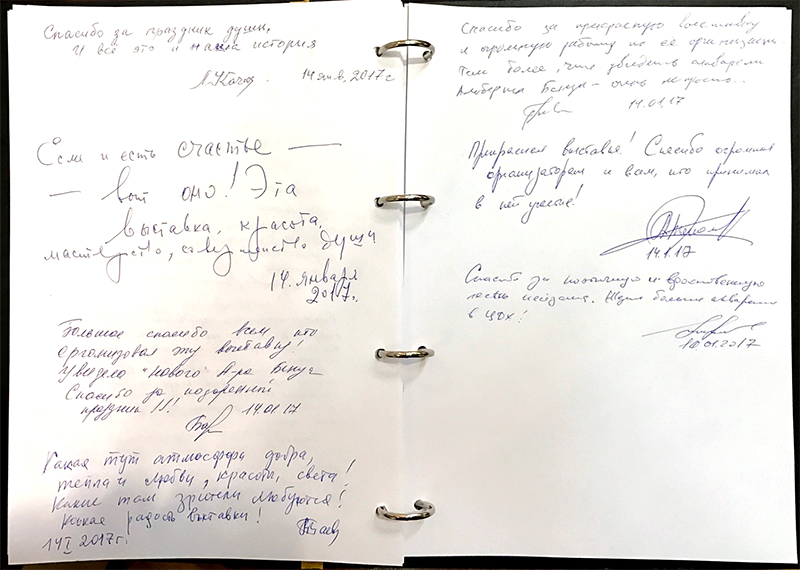 Спасибо за праздник души.
И всё это и наша история
14 янв, 2017 г
Если и есть счастье —
— вот оно! Эта
выставка, красота,
мастерство, совершенство души
14. января
2017г.
Большое спасибо всем, кто
организовал эту выставку!
Увидела "нового" А-ра Бенуа
Спасибо за подаренный
праздник!!!
14.01.17
Какая тут атмосфера добра,
тепла и любви, красоты, света!
Какие там зрители любуются!
Какая радость выставки!
14 I 2017г.
Спасибо за прекрасную выставку
и огромную работу по её организации
Тем более, что увидеть акварели
Альберта Бенуа - очень непросто...
14.01.17
Прекрасная выставка! Спасибо огромное
организаторам и всем, кто принимал
в ней участие!
14.1.17
Спасибо за поэтичную и
акварели
в ЦДХ!
2017